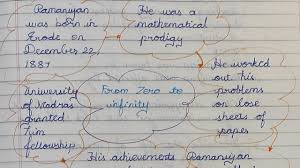 Ramanujan
was born in
Erode on
December 22
1887
He was a
mathematical
prodigy
University
of Madras
granted
him
fellowship
From Zero to
infinity
He worked
out his
problems
on lose
sheets of
paper
His achievements
Ramanujan